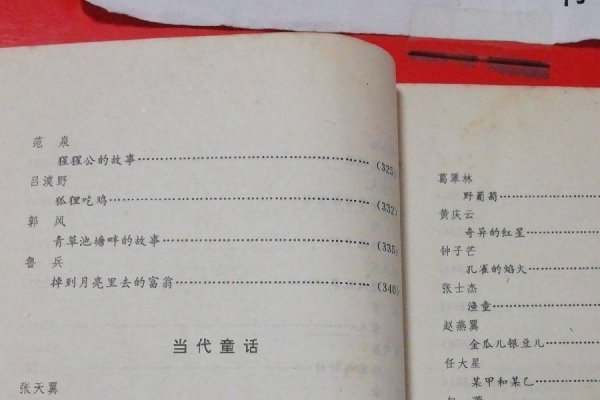 范 泉
猩猩公的故事……(325)
吕漠野
狐狸吃鸡……(332)
郭 风
青草池塘畔的故事……(335)
鲁 兵
掉到月亮里去的富翁……(340)
当代童话
张天翼
葛翠林
野葡萄……
黄庆云
奇异的红星……
钟子芒
孔雀的焰火……
张士杰
渔童……
赵燕翼
金瓜儿银豆儿……
任大星
某甲和某乙……